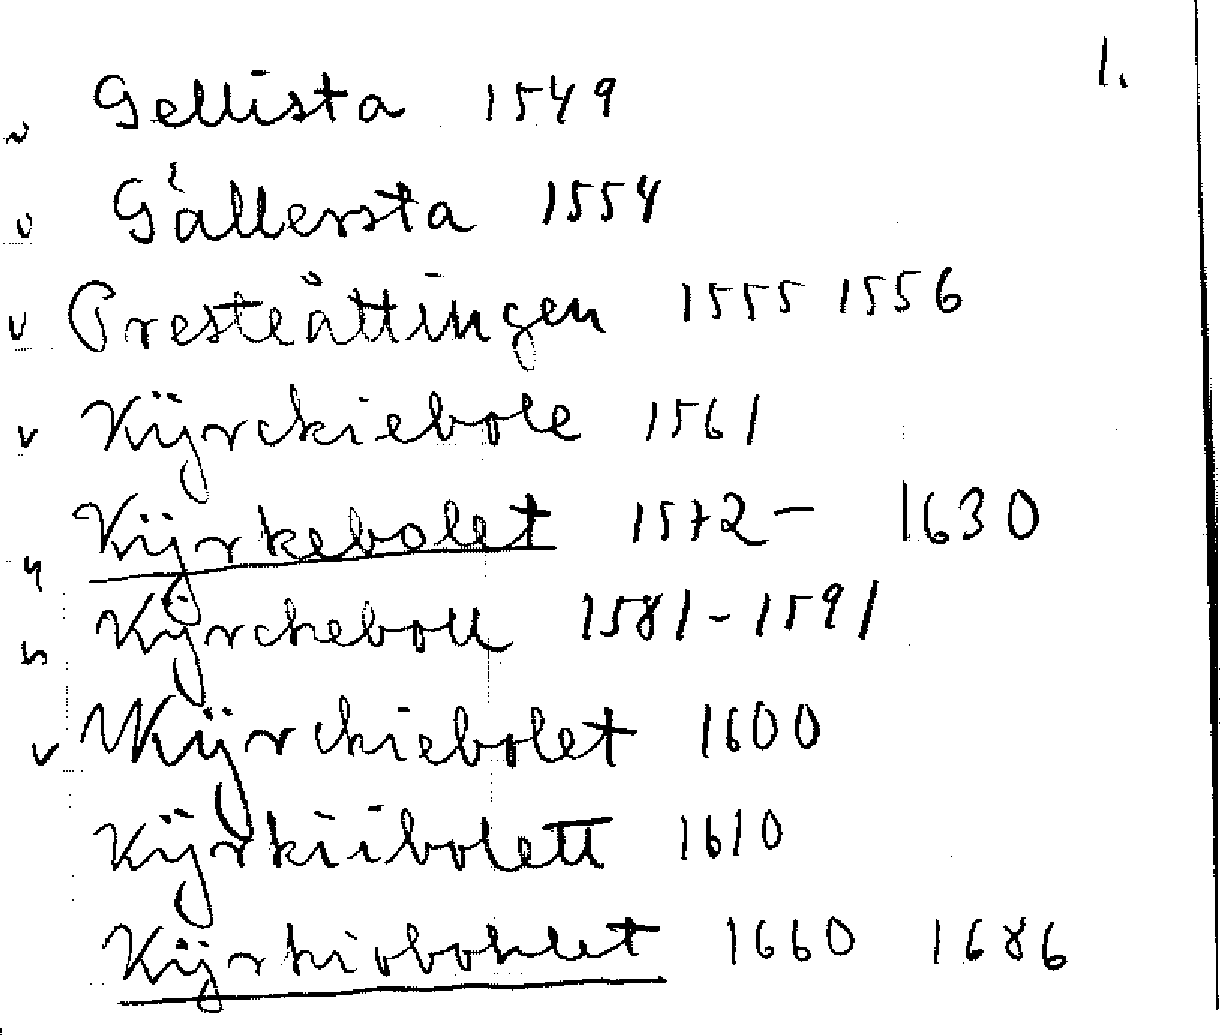 1.
Gellista 1549
Gällersta 1554
Presteåttingen 1555 1556
Kÿrckiebole 1561
Kÿrkebolet 1572- 1630
Kÿrckeboll 1581-1591
Kÿrckiebolet 1600
Kÿrkiibolett 1610
Kÿrkiobohlet 1660 1686